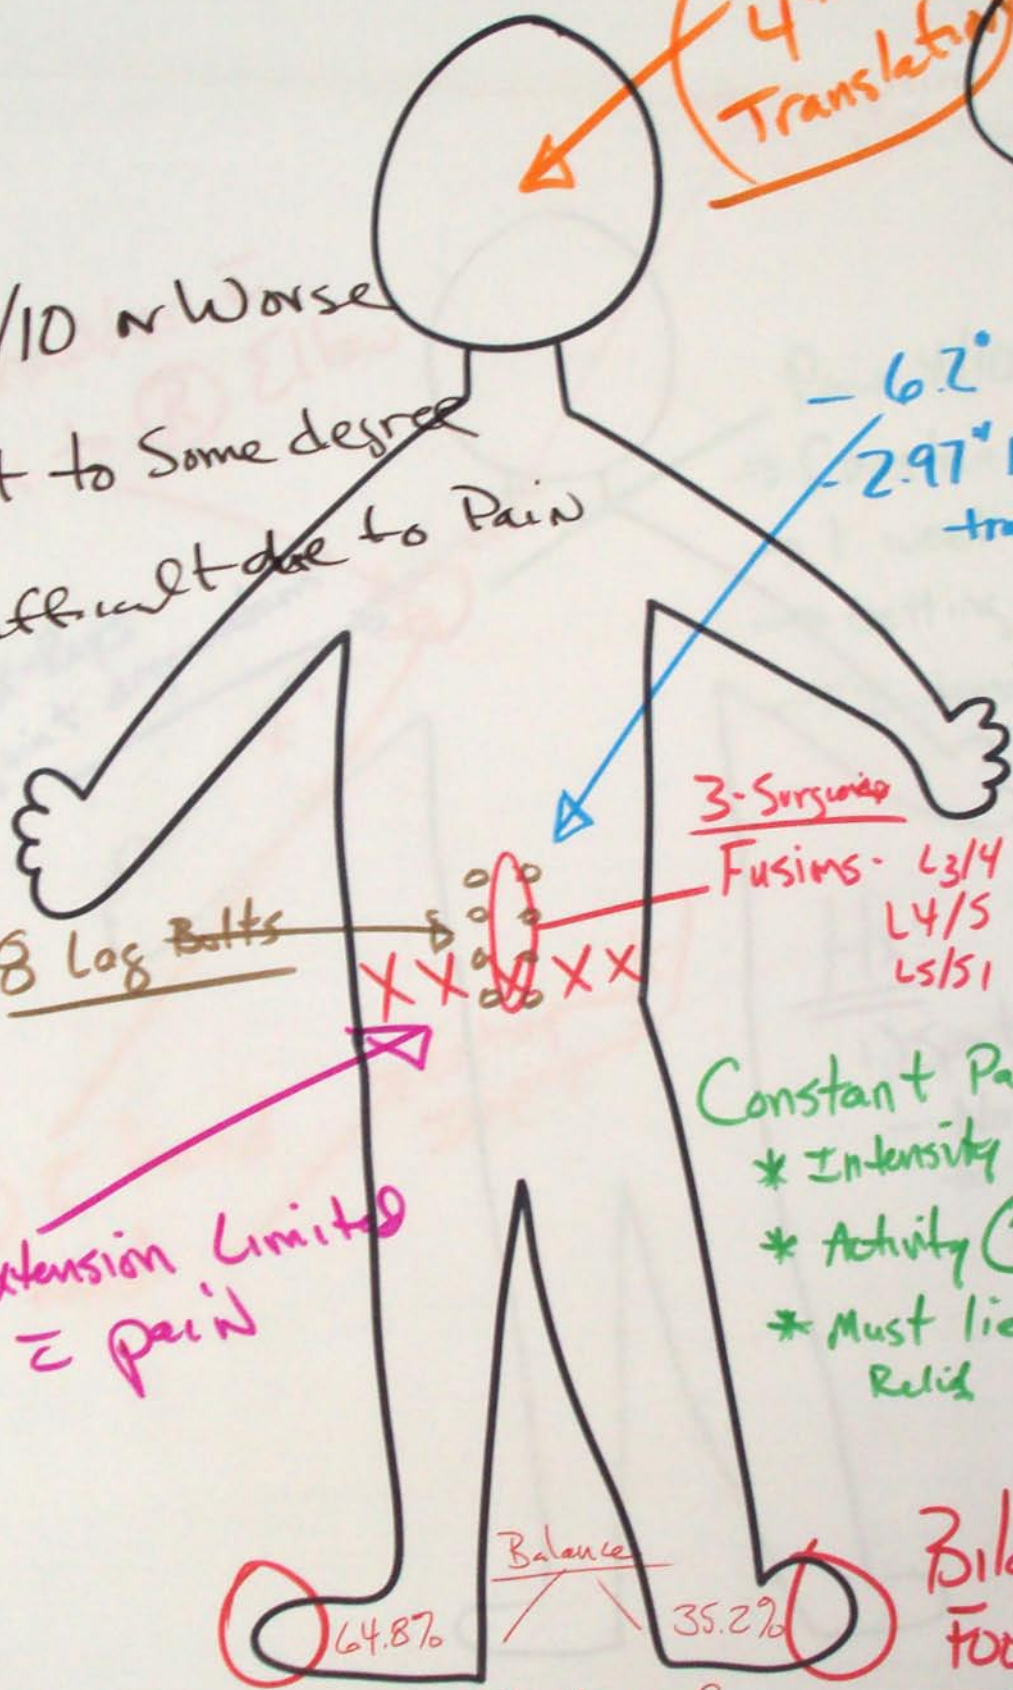 4"
Translation
/10 or Worse
t to Some degree
fficult due to Pain
- 6.2°
- 2.97"
tra
3-Surgeries
Fusions- L3/4
L4/5
L5/S1
8 Lag Bolts
Constant Pa
* Intensity
* Activity (
* Must lie
Relief
xtension Limited
= pain
Balance
64.8%
35.2%
Bila
Foo